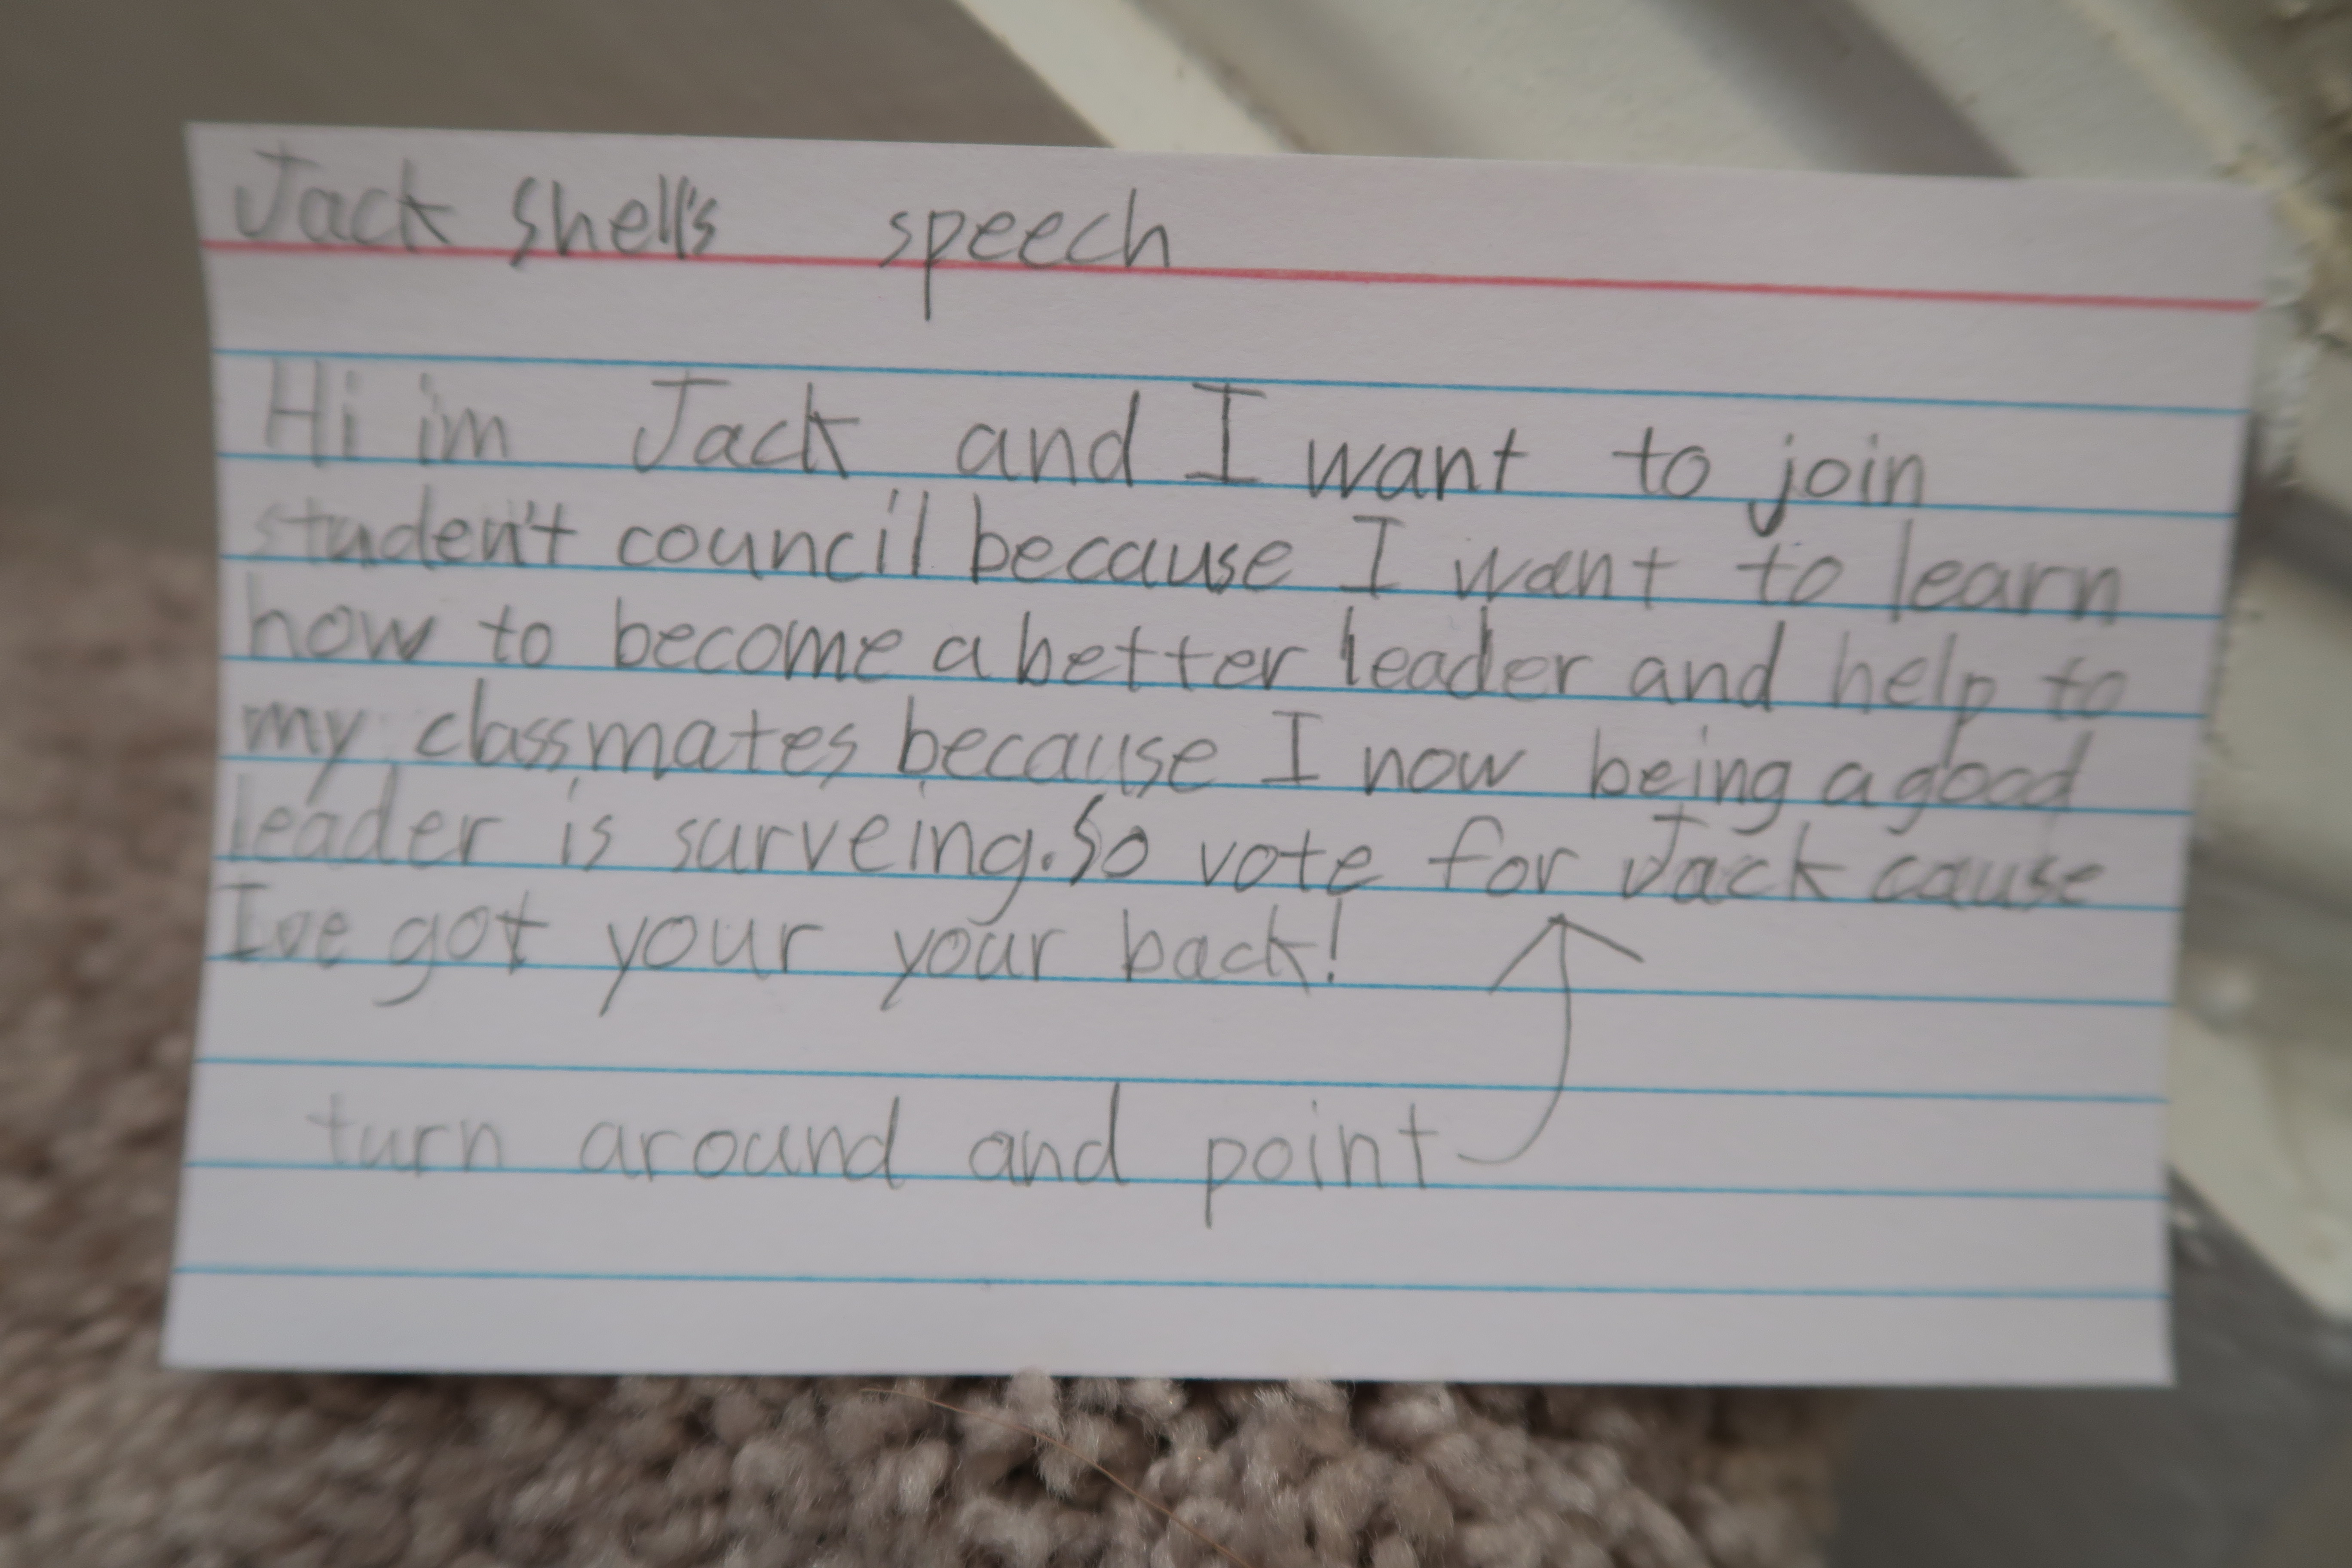 Jack Shell's speech
Hi im Jack and I want to join
studen't council because I want to learn
how to become a better leader and help to
my classmates because I now being a good
leader is surveing. So vote for Jack cause
Ive got your your back!
turn around and point